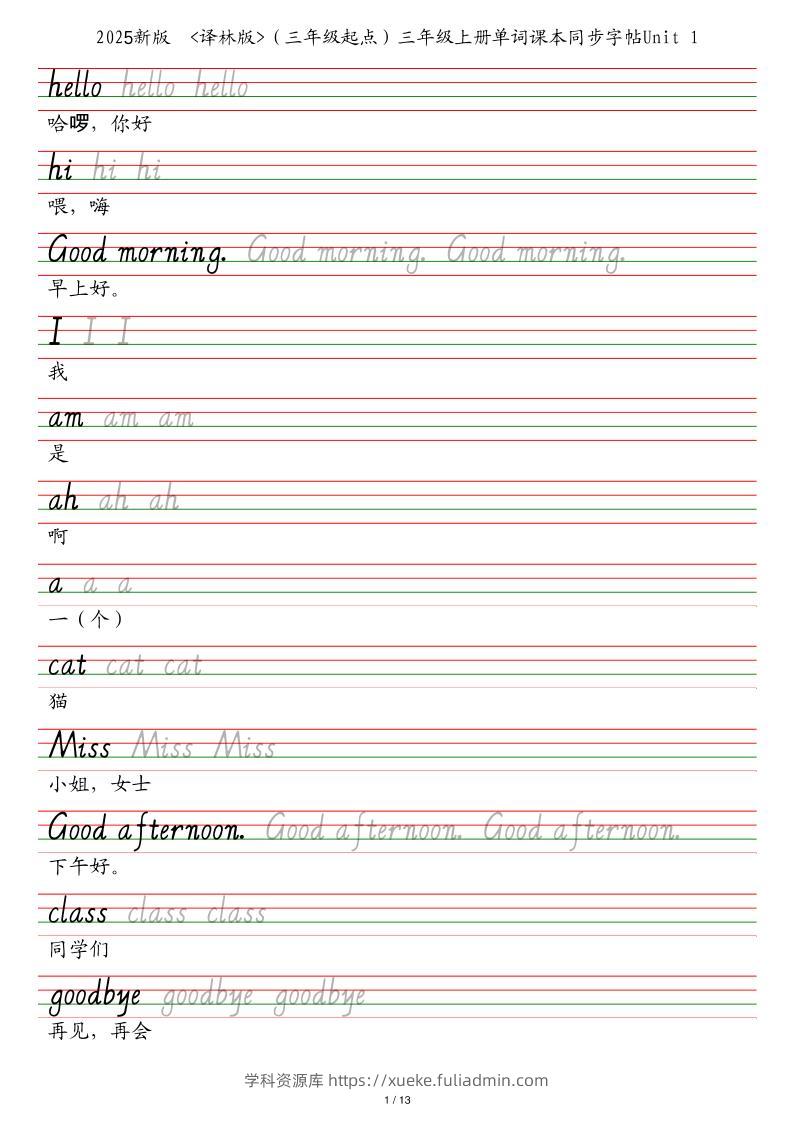 2025新版 <译林版>（三年级起点）三年级上册单词课本同步字帖Unit 1
hello hello hello
哈啰，你好
hi hi hi
喂，嗨
Good morning. Good morning. Good morning.
早上好。
I I I
我
am am am
是
ah ah ah
啊
a a a
一（个）
cat cat cat
猫
Miss Miss Miss
小姐，女士
Good afternoon. Good afternoon. Good afternoon.
下午好。
class class class
同学们
goodbye goodbye goodbye
再见，再会
学科资源库 https://xueke.fuliadmin.com
1 / 13